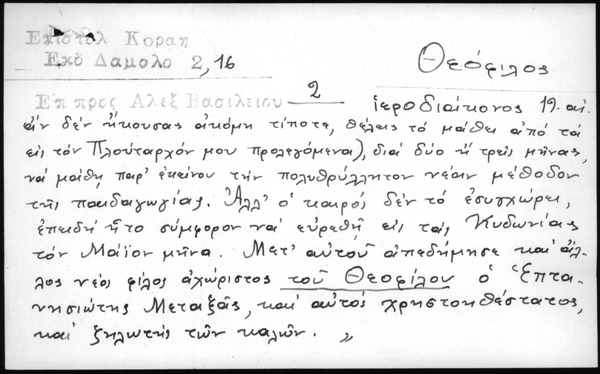 Επιστολ Κοραη
Εκδ Δαμαλα 2,16
Θεόφιλος
2
Επ προς Αλεξ Βασιλειου
ἱεροδιάκονος 19. αἰ.
ἐάν δέν ἤκουσας ἀκόμη τίποτε, θέλεις τό μάθει ἀπό τά
εἰς τόν Πλούταρχόν μου προλεγόμενα), διά δύο ἤ τρεῖς μῆνας,
νά μάθη παρ' ἐκείνου τήν πολυθρύλλητον νέαν μέθοδον
τῆς παιδαγωγίας. Ἀλλ' ὁ καιρός δέν τό ἐσυγχώρει,
ἐπειδή ἦτο σύμφορον νά εὑρεθῆ εἰς τάς Κυδωνίας
τόν Μάϊον μῆνα. Μετ' αὐτοῦ ἀπεδήμησε καί ἄλ-
λος νέος φίλος ἀχώριστος τοῦ Θεοφίλου ὁ Ἑπτα-
νησιώτης Μεταξᾶς, καί αὐτός χρηστοηθέστατος,
καί ζηλωτής τῶν καλῶν. »